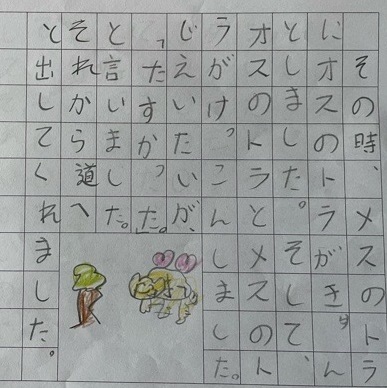 その時、メスのトラ
にオスのトラがきゅん
としました。そして、
オスのトラとメスのト
ラがけっこんしました。
じえいたいが、
「たすかった。」
と言いました。
それから道へ
と出してくれました。